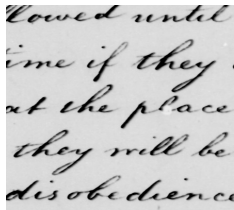 llowed until
time if they
at the place
they will be
disobedience